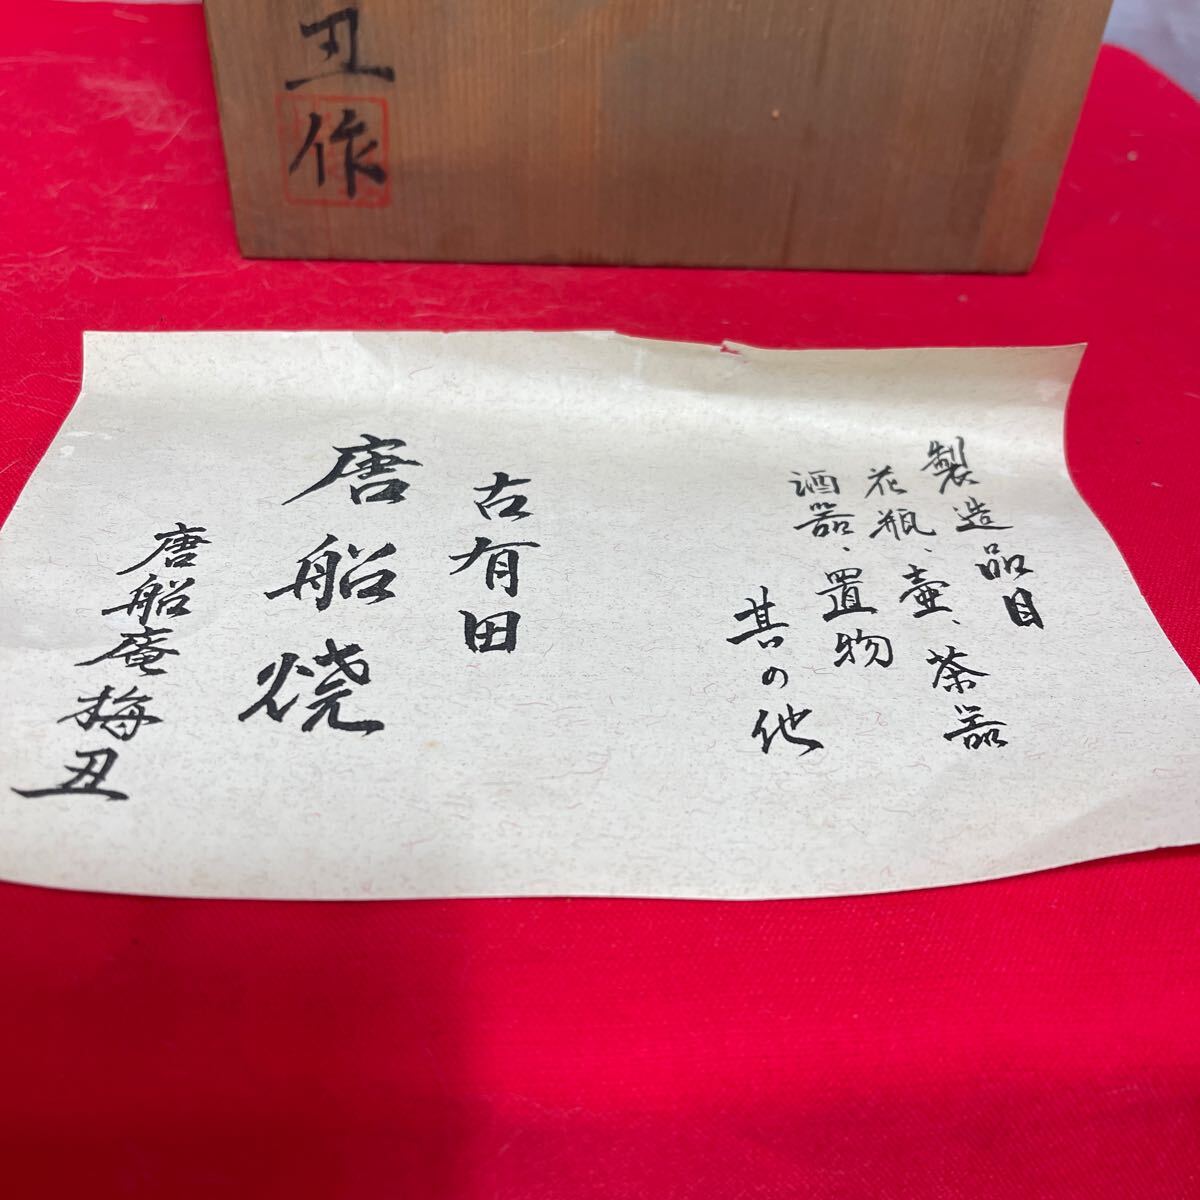 丑作
製造品目
花瓶、壷、茶器
酒器、置物
其の他
古有田
唐船焼
唐船庵梅丑